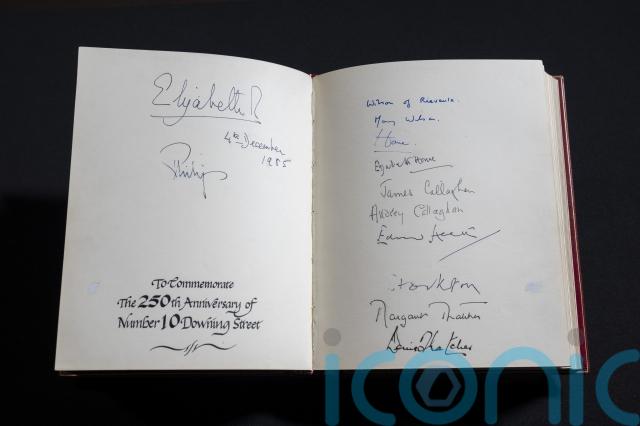 Elizabeth R
4th December
1985
Philip
To Commemorate
The 250th Anniversary of
Number 10 Downing Street
Wilson of Rievaulx.
Mary Wilson.
Home.
Elizabeth Home
James Callaghan
Audrey Callaghan
Edward Heath
Stockton
Margaret Thatcher
Denis Thatcher
iconic